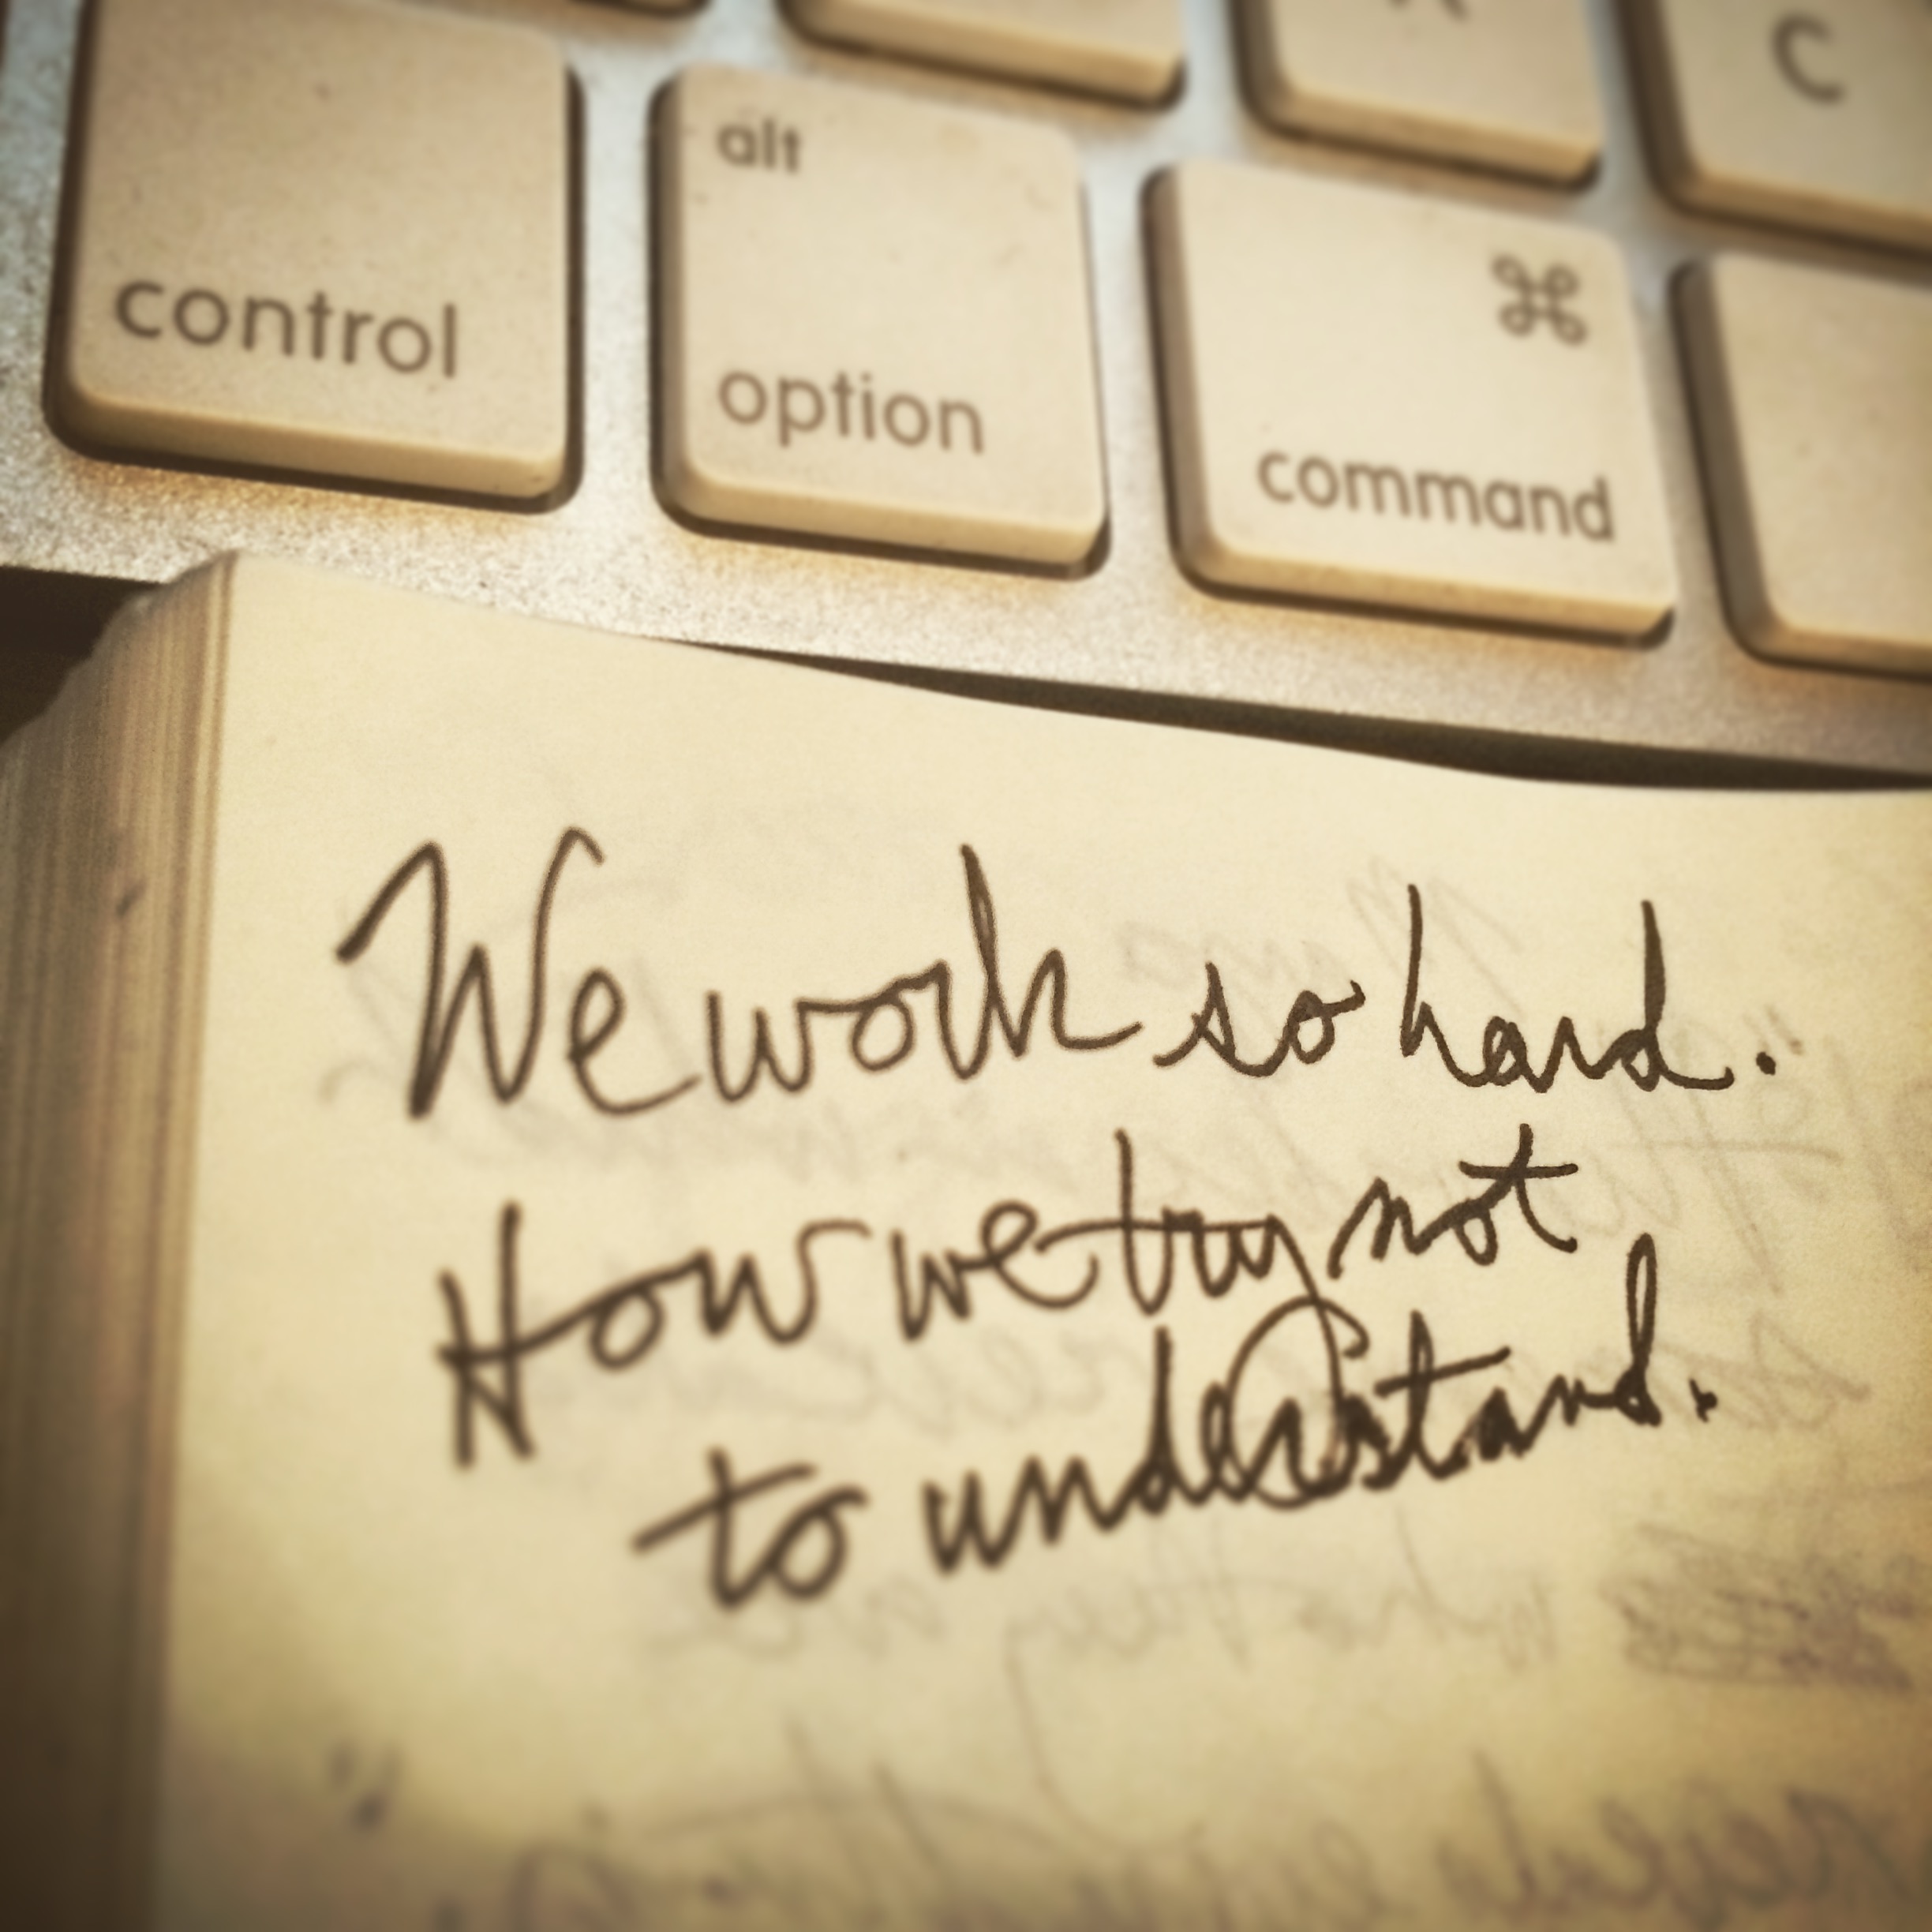 C
alt
⌘
control
option
command
We work so hard.
How we try not
to understand.